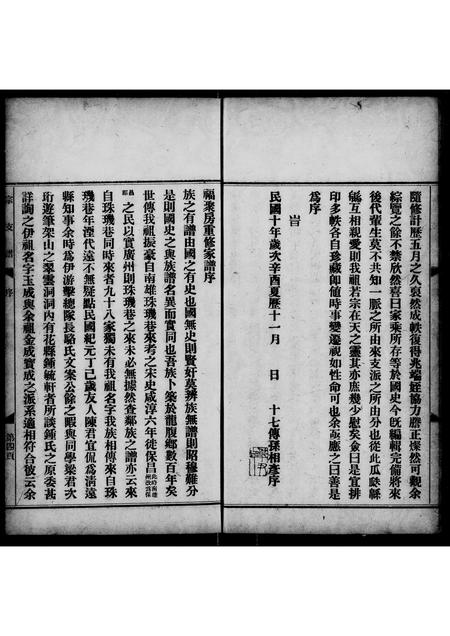 隨修計歷五月之久裒然成帙復得兆端姪協力贋正燦然可觀余
綜覽之餘不禁欣然喜曰家乘所存等於國史今旣編輯完備將來
後代輩生莫不共知一脈之所由來支派之所由分也從此瓜瓞緜
緜互相親愛則我祖若宗在天之靈其亦庶幾少慰矣僉曰是宜排
印多帙各自珍藏卽値時事變遷視如性命可也余亟應之曰善是
爲序
旹
民國十年歲次辛酉夏歷十一月 日 十七傳孫相彥序
福來房重修家譜序
族之有譜由國之有史也國無史則賢奸莫辨族無譜則昭穆難分
是則國史之與族譜名異而實同也吾族卜築於龍腹鄕數百年矣
世傳我祖振豪自南雄珠璣巷來考之宋史咸淳六年徙保昌
之民以實廣州則珠璣巷之來未必無據然查鄰族之譜亦云來
自珠璣巷同時來者九十八家獨未有我祖名字我族相傳來自珠
璣巷年湮代遠不無疑點民國紀元丁巳歲友人陳君宜侃爲淸遠
縣知事余時爲伊游擊總隊長駱氏文案公餘之暇與同學梁君次
珩遊筆架山之翠雲洞洞內有花縣鍾毓軒者所談鍾氏之原委甚
詳詢之伊祖名字玉成與余祖金成寶成之派系適相符合彼云余
宗支譜 序 第四頁